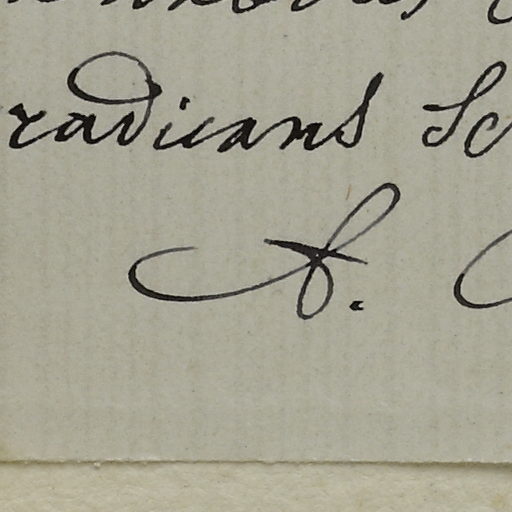 radicans Sc
A.